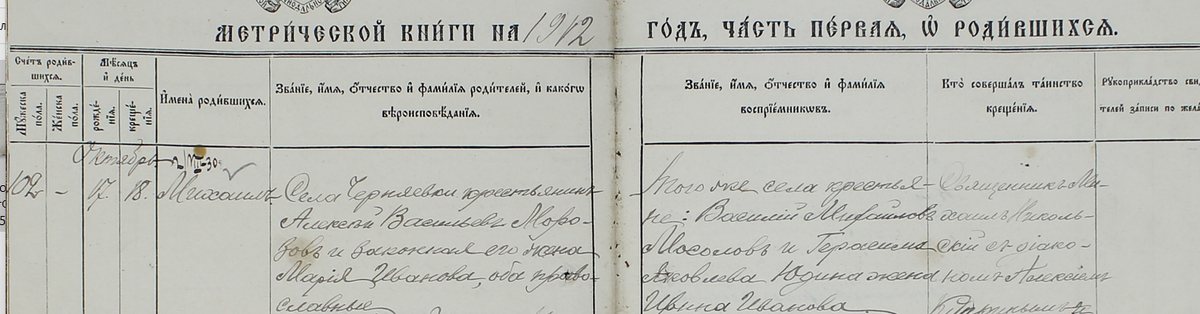 МЕТРИ́ЧЕСКОЙ КНИ́ГИ НА 1912 ГОДЪ, ЧА́СТЬ ПЕ́РВАЯ, Ѡ РОДИ́ВШИХСЯ.
Сче́тъ роди́в-
шихся.
Му́жеска пола.
Же́нска пола.
Мѣ́сяцъ
и де́нь
рожде́-
нія.
креще́-
нія.
И҆мена̀ роди́вшихся.
Зва́ніе, и҆́мя, ѻ҆́тчество и҆ фами́лія роди́телей, и҆ како́гѡ
вѣроисповѣ́данія.
Зва́ніе, и҆́мя, ѻ҆́тчество и҆ фами́лія
воспріе́мниковъ.
Кто̀ соверша́лъ та́инство
креще́нія.
Рꙋкоприкла́дство сви
телей за́писи по жела
Октябрь
102
-
17.
18.
Михаилъ
Села Черняевки крестьянинъ
Алексѣй Васильевъ Моро-
зовъ и законная его жена
Марія Иванова, оба право-
славные
Того же села крестья-
не: Василій Михаиловъ
Мосоловъ и Герасима
Яковлева Юдина жена
Ирина Иванова
Священникъ Ми-
хаилъ Николь-
скій съ діако-
номъ Алексіемъ